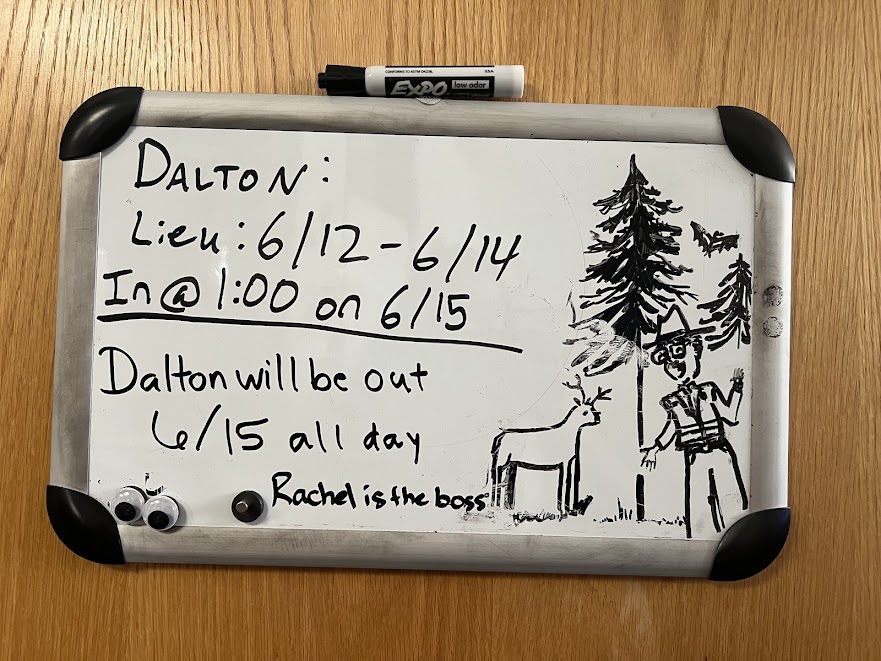 CONFORMS TO ASTM D4236
USA
EXPO low odor
DALTON:
Lieu: 6/12 - 6/14
In @ 1:00 on 6/15
Dalton will be out
6/15 all day
Rachel is the boss